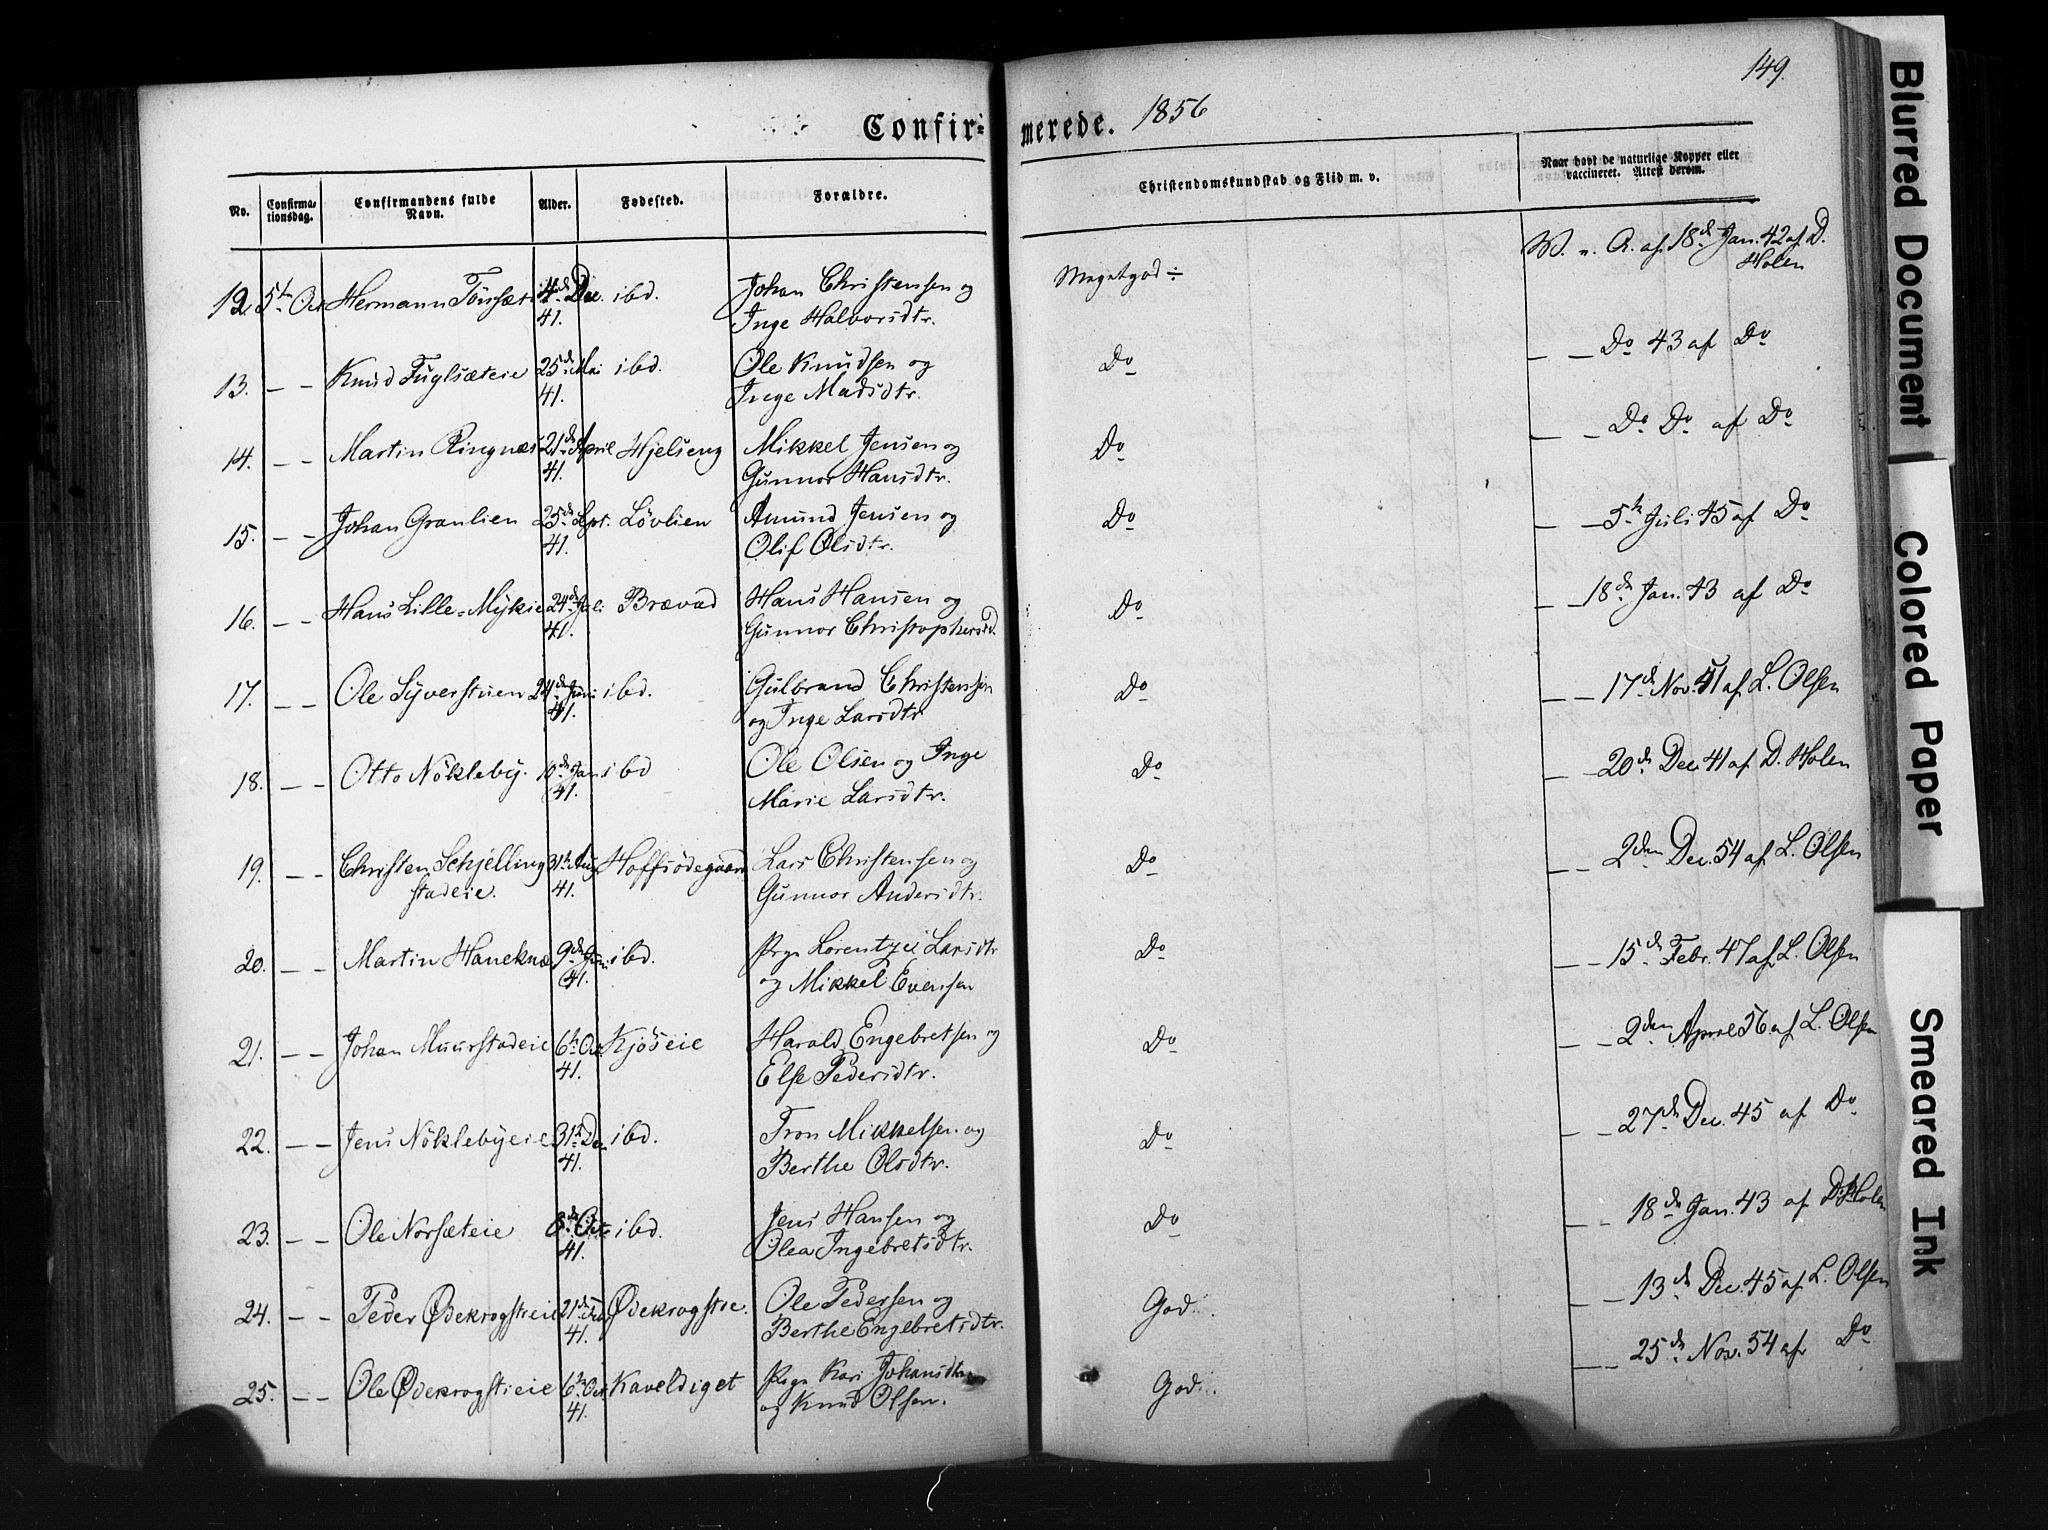 149.
Confirmerede. 1856
No.
Confirmationsdag.
Confirmandens fulde Navn.
Alder.
Fødested.
Forældre.
Christendomskundskab og Flid m. v.
Naar havt de naturlige Kopper eller vaccineret. Attest derom.
12. 5te Oct Hermann 4de Dec. ibd. Johan Christensen og Megetgod ÷ 18de Jan. 42 af D. Holen
41. Inge Halvorsdtr.
13. — — Knud Fuglsæteie 25de Mai ibd. Ole Knudsen og Do — — Do 43 af Do
41. Inge Madsdtr.
14. — — Martin Ringnæs 21de April Hjelseng Mikkel Jensen og Do — — Do Do af Do
41. Gunnor Hansdtr.
15. — — Johan Granlien 25de Sept. Lövlien Amund Jensen og Do — — 5te Juli 45 af Do
41. Olif Olsdtr.
16. — — Hans Lille-Mÿkie 24de Juli Brævad Hans Hansen og Do — — 18de Jan. 43 af Do
41. Gunnor Christophersd.
17. — — Ole Syverstuen 24de Juni ibd. Gulbrand Christensen Do — — 17de Nov. 41 af L. Olsen
41. og Inge Larsdtr.
18. — — Otto Nökleby. 10de Jan ibd Ole Olsen og Inge Do — — 20de Dec. 41 af D. Holen
41. Marie Larsdtr.
19. — — Christen Schjelling 31te Aug Hoffsödegaard Lars Christensen og Do — — 2den Dec. 54 af L. Olsen
stadeie. 41. Gunnor Andersdtr.
20. — — Martin Haneknæ 9de Juni ibd. Pige Lorentze Larsdtr Do — — 15de Febr. 47 af L. Olsen
41. og Mikkel Evensen
21. — — Johan Muurstadeie 6te Oct Kjöseie Harald Engebretsen og Do — — 2den April 56 af L. Olsen
41. Else Pedersdtr.
22. — — Jens Nöklebyeie 31te Dec ibd. Tron Mikkelsen og Do — — 27de Dec. 45 af Do
41. Berthe Olsdtr.
23. — — Ole Norsæteie 8de Oct. ibd. Jens Hansen og Do — — 18de Jan. 43 af D. Holen
41. Olea Ingebretsdtr.
24. — — Peder Ødekrogstieie 21de Ødekrogstie. Ole Pedersen og God. — — 13de Dec. 45 af L. Olsen
41. Berthe Engebretsdtr.
25. — — Ole Ødekrogstieie 6te Oct Kaveldiget Pige Kari Johansdtr God. — — 25de Nov. 54 af Do
41. og Knud Olsen.
Blurred Document
Colored Paper
Smeared Ink